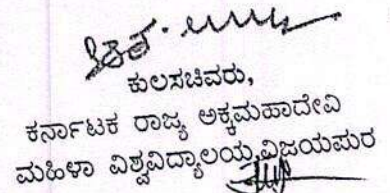 ಕುಲಸಚಿವರು,
ಕರ್ನಾಟಕ ರಾಜ್ಯ ಅಕ್ಕಮಹಾದೇವಿ
ಮಹಿಳಾ ವಿಶ್ವವಿದ್ಯಾಲಯ,ವಿಜಯಪುರ